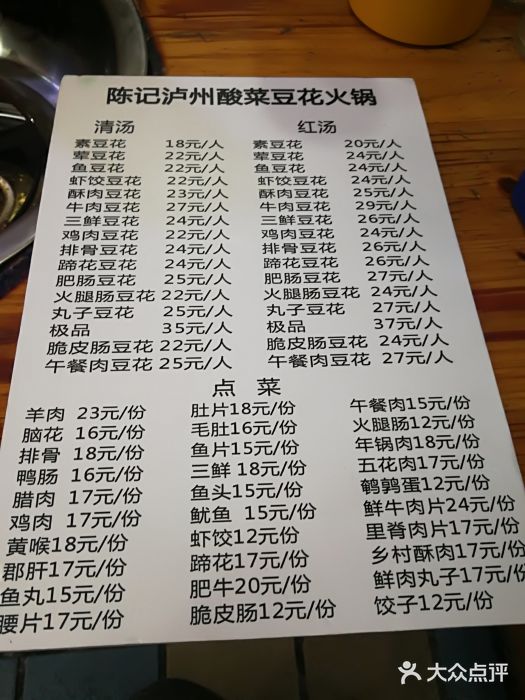 陈记泸州酸菜豆花火锅
清汤 红汤
素豆花 18元/人 素豆花 20元/人
荤豆花 22元/人 荤豆花 24元/人
鱼豆花 22元/人 鱼豆花 24元/人
虾饺豆花 22元/人 虾饺豆花 24元/人
酥肉豆花 23元/人 酥肉豆花 25元/人
牛肉豆花 27元/人 牛肉豆花 29元/人
三鲜豆花 24元/人 三鲜豆花 26元/人
鸡肉豆花 22元/人 鸡肉豆花 24元/人
排骨豆花 24元/人 排骨豆花 26元/人
蹄花豆花 24元/人 蹄花豆花 26元/人
肥肠豆花 25元/人 肥肠豆花 27元/人
火腿肠豆花 22元/人 火腿肠豆花 24元/人
丸子豆花 25元/人 丸子豆花 27元/人
极品 35元/人 极品 37元/人
脆皮肠豆花 22元/人 脆皮肠豆花 24元/人
午餐肉豆花 25元/人 午餐肉豆花 27元/人
点菜
羊肉 23元/份 肚片18元/份 午餐肉15元/份
脑花 16元/份 毛肚16元/份 火腿肠12元/份
排骨 18元/份 鱼片15元/份 年锅肉18元/份
鸭肠 16元/份 三鲜 18元/份 五花肉17元/份
腊肉 17元/份 鱼头15元/份 鹌鹑蛋12元/份
鸡肉 17元/份 鱿鱼 15元/份 鲜牛肉片24元/份
黄喉18元/份 虾饺12元/份 里脊肉片17元/份
郡肝17元/份 蹄花17元/份 乡村酥肉17元/份
鱼丸15元/份 肥牛20元/份 鲜肉丸子17元/份
腰片17元/份 脆皮肠12元/份 饺子12元/份
大众点评